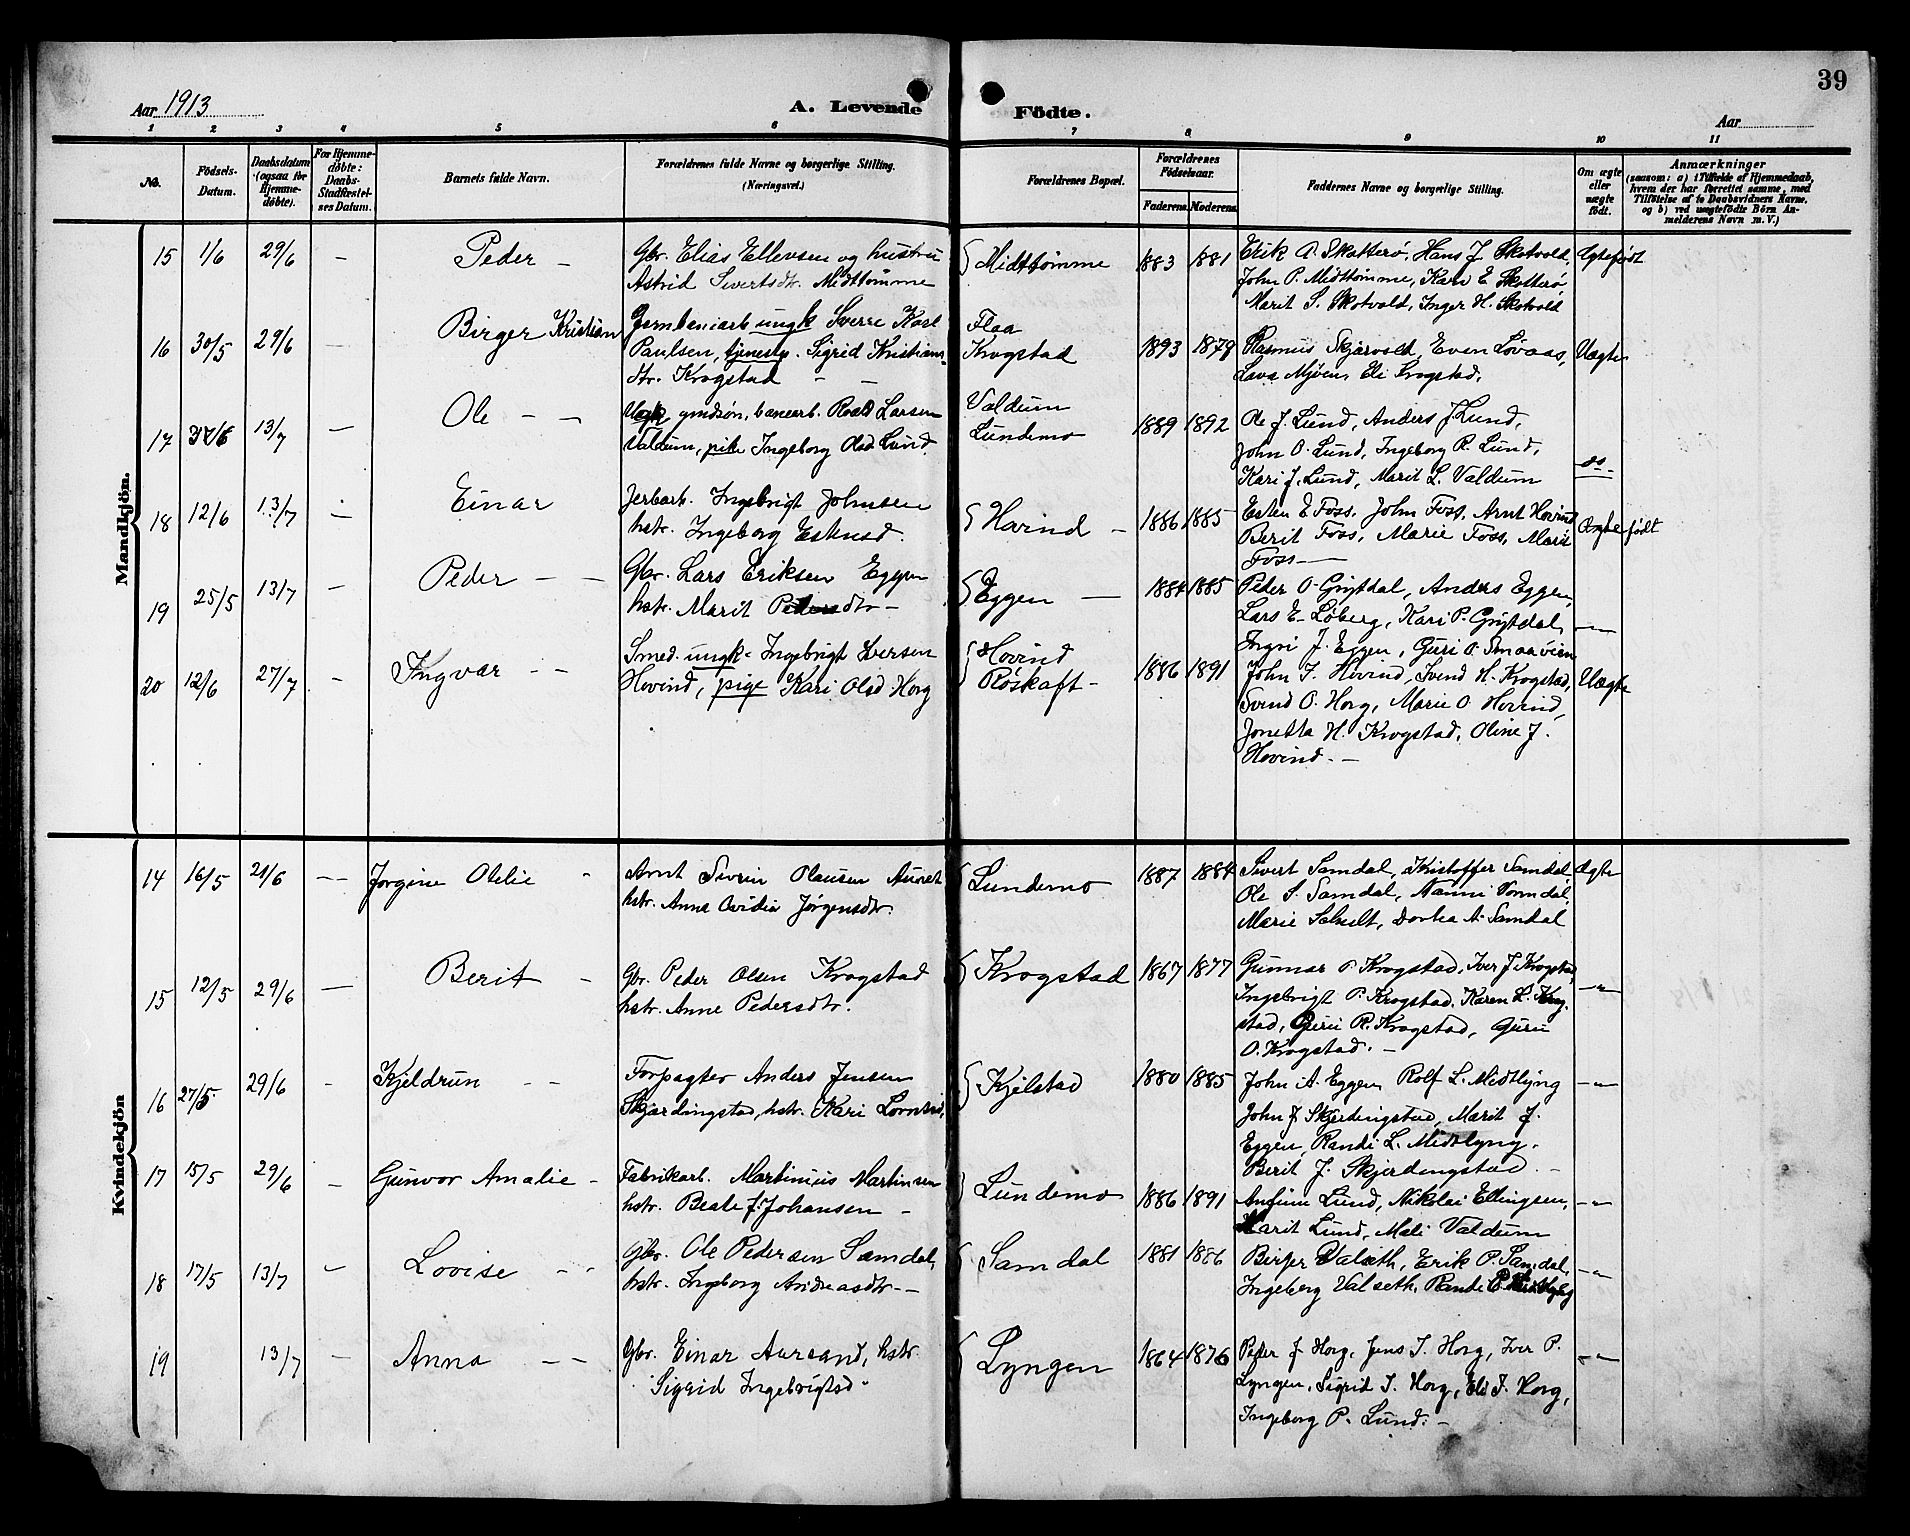 39
Aar 1913
A. Levende Födte.
Aar
1 2 3 4 5 6 7 8 9 10 11
No.
Födsels-Datum.
Daabsdatum (ogsaa for Hjemme-døbte).
For Hjemme-døbte: Daabs-Stadfæstel-ses Datum.
Barnets fulde Navn.
Forældrenes fulde Navne og borgerlige Stilling.
(Næringsvei.)
Forældrenes Bopæl.
Forældrenes Födselsaar.
Faderens. Moderens.
Faddernes Navne og borgerlige Stilling.
Om ægte eller uægte født.
Anmærkninger
(saasom: a) i Tilfælde af Hjemmedaab, hvem der har forrettet samme, med Tilföielse af to Daabsvidners Navne, og b) ved uægtefödte Börn An-melderens Navn m. V.)
Mandkjön.
15 1/6 29/6 — Peder —
Gbr. Elias Ellevsen og hustru
Astrid Sivertsdtr. Midttømme
Midttømme 1883 1881
Erik A. Skotterø, Hans J. Skotvold,
John P. Midttømme, Kari E. Skotterø
Marit S. Skotvold, Inger H. Skotvold
Ægtefødt
16 30/5 29/6 — Birger Kristian
Jernbanearb ungk Sverre Karl
Paulsen, tjenestp. Sigrid Kristians-
dtr. Krogstad — —
Flaa
Krogstad 1893 1879
Rasmus Skjærvold, Even Løvaas,
Lava Mjøen, Eli Krogstad.
Uægte
17 13/7 — Ole — —
gmdsøn, banearb. Roald Larsen
Valdum, pike Ingeborg Olsd Lund.
Valdum
Lundemo 1889 1892
Ole J. Lund, Anders J. Lund,
John O. Lund, Ingeborg R. Lund,
Kari J. Lund, Marit L. Valdum
do
18 12/6 13/7 — Einar
Jerbarb. Ingebrigt Johnsen
hstr. Ingeborg Estensd.
Havind — 1886 1885
Esten E Foss, John Foss, Arnt Hovind
Berit Foss, Marie Foss, Marit
Foss —
Ægtefødt
19 25/5 13/7 — Peder — —
Gbr. Lars Eriksen Eggen
hstr. Marit Pedersdtr —
Eggen — 1884 1885
Peder O. Grytdal, Anders Eggen,
Lars E. Løberg, Kari P. Grytdal,
Ingri J. Eggen, Guri O. Smaavien
—"—
20 12/6 27/7 — Ingvar — —
Smed. ungk. Ingebrigt Iversen
Hovind, pige Kari Olsd Horg
Hovind
Røskaft — 1886 1891
John I. Hovind, Svend H. Krogstad,
Svend O. Horg, Marie O. Hovind,
Jonetta H. Krogstad, Oline J.
Hovind. —
Uægte
Kvindekjön
14 16/5 21/6 — Jorgine Otelie —
Arnt Sivrin Olausen Aunet
hstr. Anna Ovidia Jørgensdtr.
Lundemo 1887 1884
Sivert Samdal, Kristoffer Samdal
Ole S. Samdal, Nanni Vormdal,
Marie Schult, Dortea A. Samdal
Ægte
15 12/5 29/6 — Berit —
Gbr. Peder Olsen Krogstad
hstr. Anne Pedersdtr.
Krogstad 1867 1877
Gunnar P Krogstad, Iver J. Krogstad,
Ingebrigt P. Krogstad, Karen L. Krog-
stad, Guri R. Krogstad, Guru
O. Krogstad. —
—"—
16 27/5 29/6 — Kjeldrun — —
Forpagter Anders Jensen
Skjærdingstad, hstr. Kari
Kjelstad 1880 1885
John A. Eggen, Rolf L. Midtlyng
John J. Skjerdingstad, Marit J.
Eggen, Randi L. Midtlyng,
Berit J. Skjerdingstad —
—"—
17 15/5 29/6 — Gunvor Amalie —
Fabrikarb. Martinius Martinsen
hstr. Beate J. Johansen —
Lundemo 1886 1891
Anfinn Lund, Nikolai Ellingsen,
Marit Lund, Mali Valdum
—"—
18 17/5 13/7 — Lovise — —
Gbr. Ole Pedersen Samdal,
hstr. Ingeborg Andreasdtr —
Samdal 1881 1886
Birger Valseth, Erik P. Samdal,
Ingeborg Valseth, Randi
—"—
19 13/7 — Anna — —
Gbr. Einar Aursand, hstr.
Sigrid Ingebrigtsd
Lyngen 1864 1876
Peder J Horg, Jens I. Horg, Iver P.
Lyngen, Sigrid I. Horg, Eli I. Horg,
Ingeborg P. Lund. —
—"—